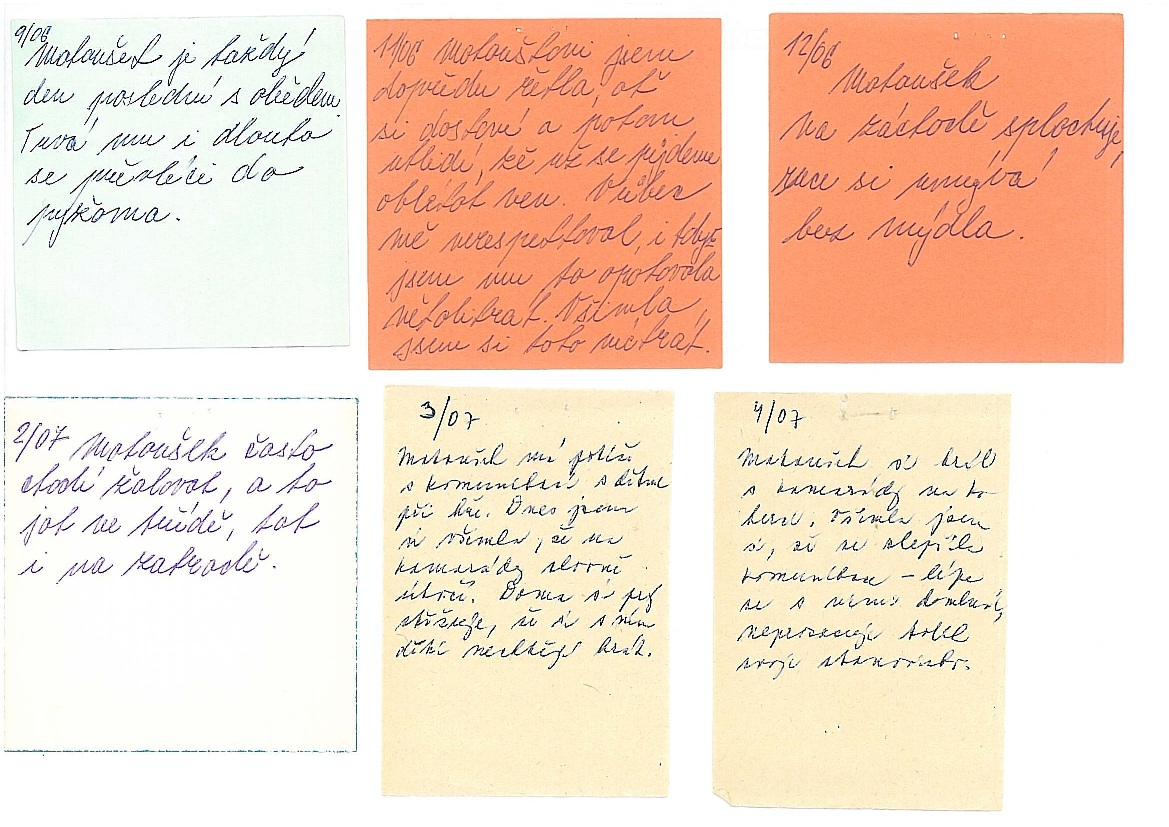 9/06
Matoušek je každý
den poslední s obědem.
Trvá mu i dlouho
se převléci do
pyžama.
11/06 Matouškovi jsem
dopředu řekla, ať
si dostaví a potom
uklidí, že už se půjdeme
oblékat ven. Vůbec
mě nerespektoval, i když
jsem mu to opakovala
několikrát. Všimla
jsem si toho víckrát.
12/06
Matoušek
na záchodě splachuje,
ruce si umývá
bez mýdla.
2/07 Matoušek často
chodí žalovat, a to
jak ve třídě, tak
i na zahradě.
3/07
Matoušek má potíže
s komunikací s dětmi
při hře. Dnes jsem
si všimla, že na
kamarády slovně
útočí. Doma si prý
stěžuje, že si s ním
děti nechtějí hrát.
4/07
Matoušek si hrál
s kamarády na ko-
berci. Všimla jsem
si, že se zlepšila
komunikace – lépe
se s nimi domluví,
neprosazuje tolik
svoje stanovisko.